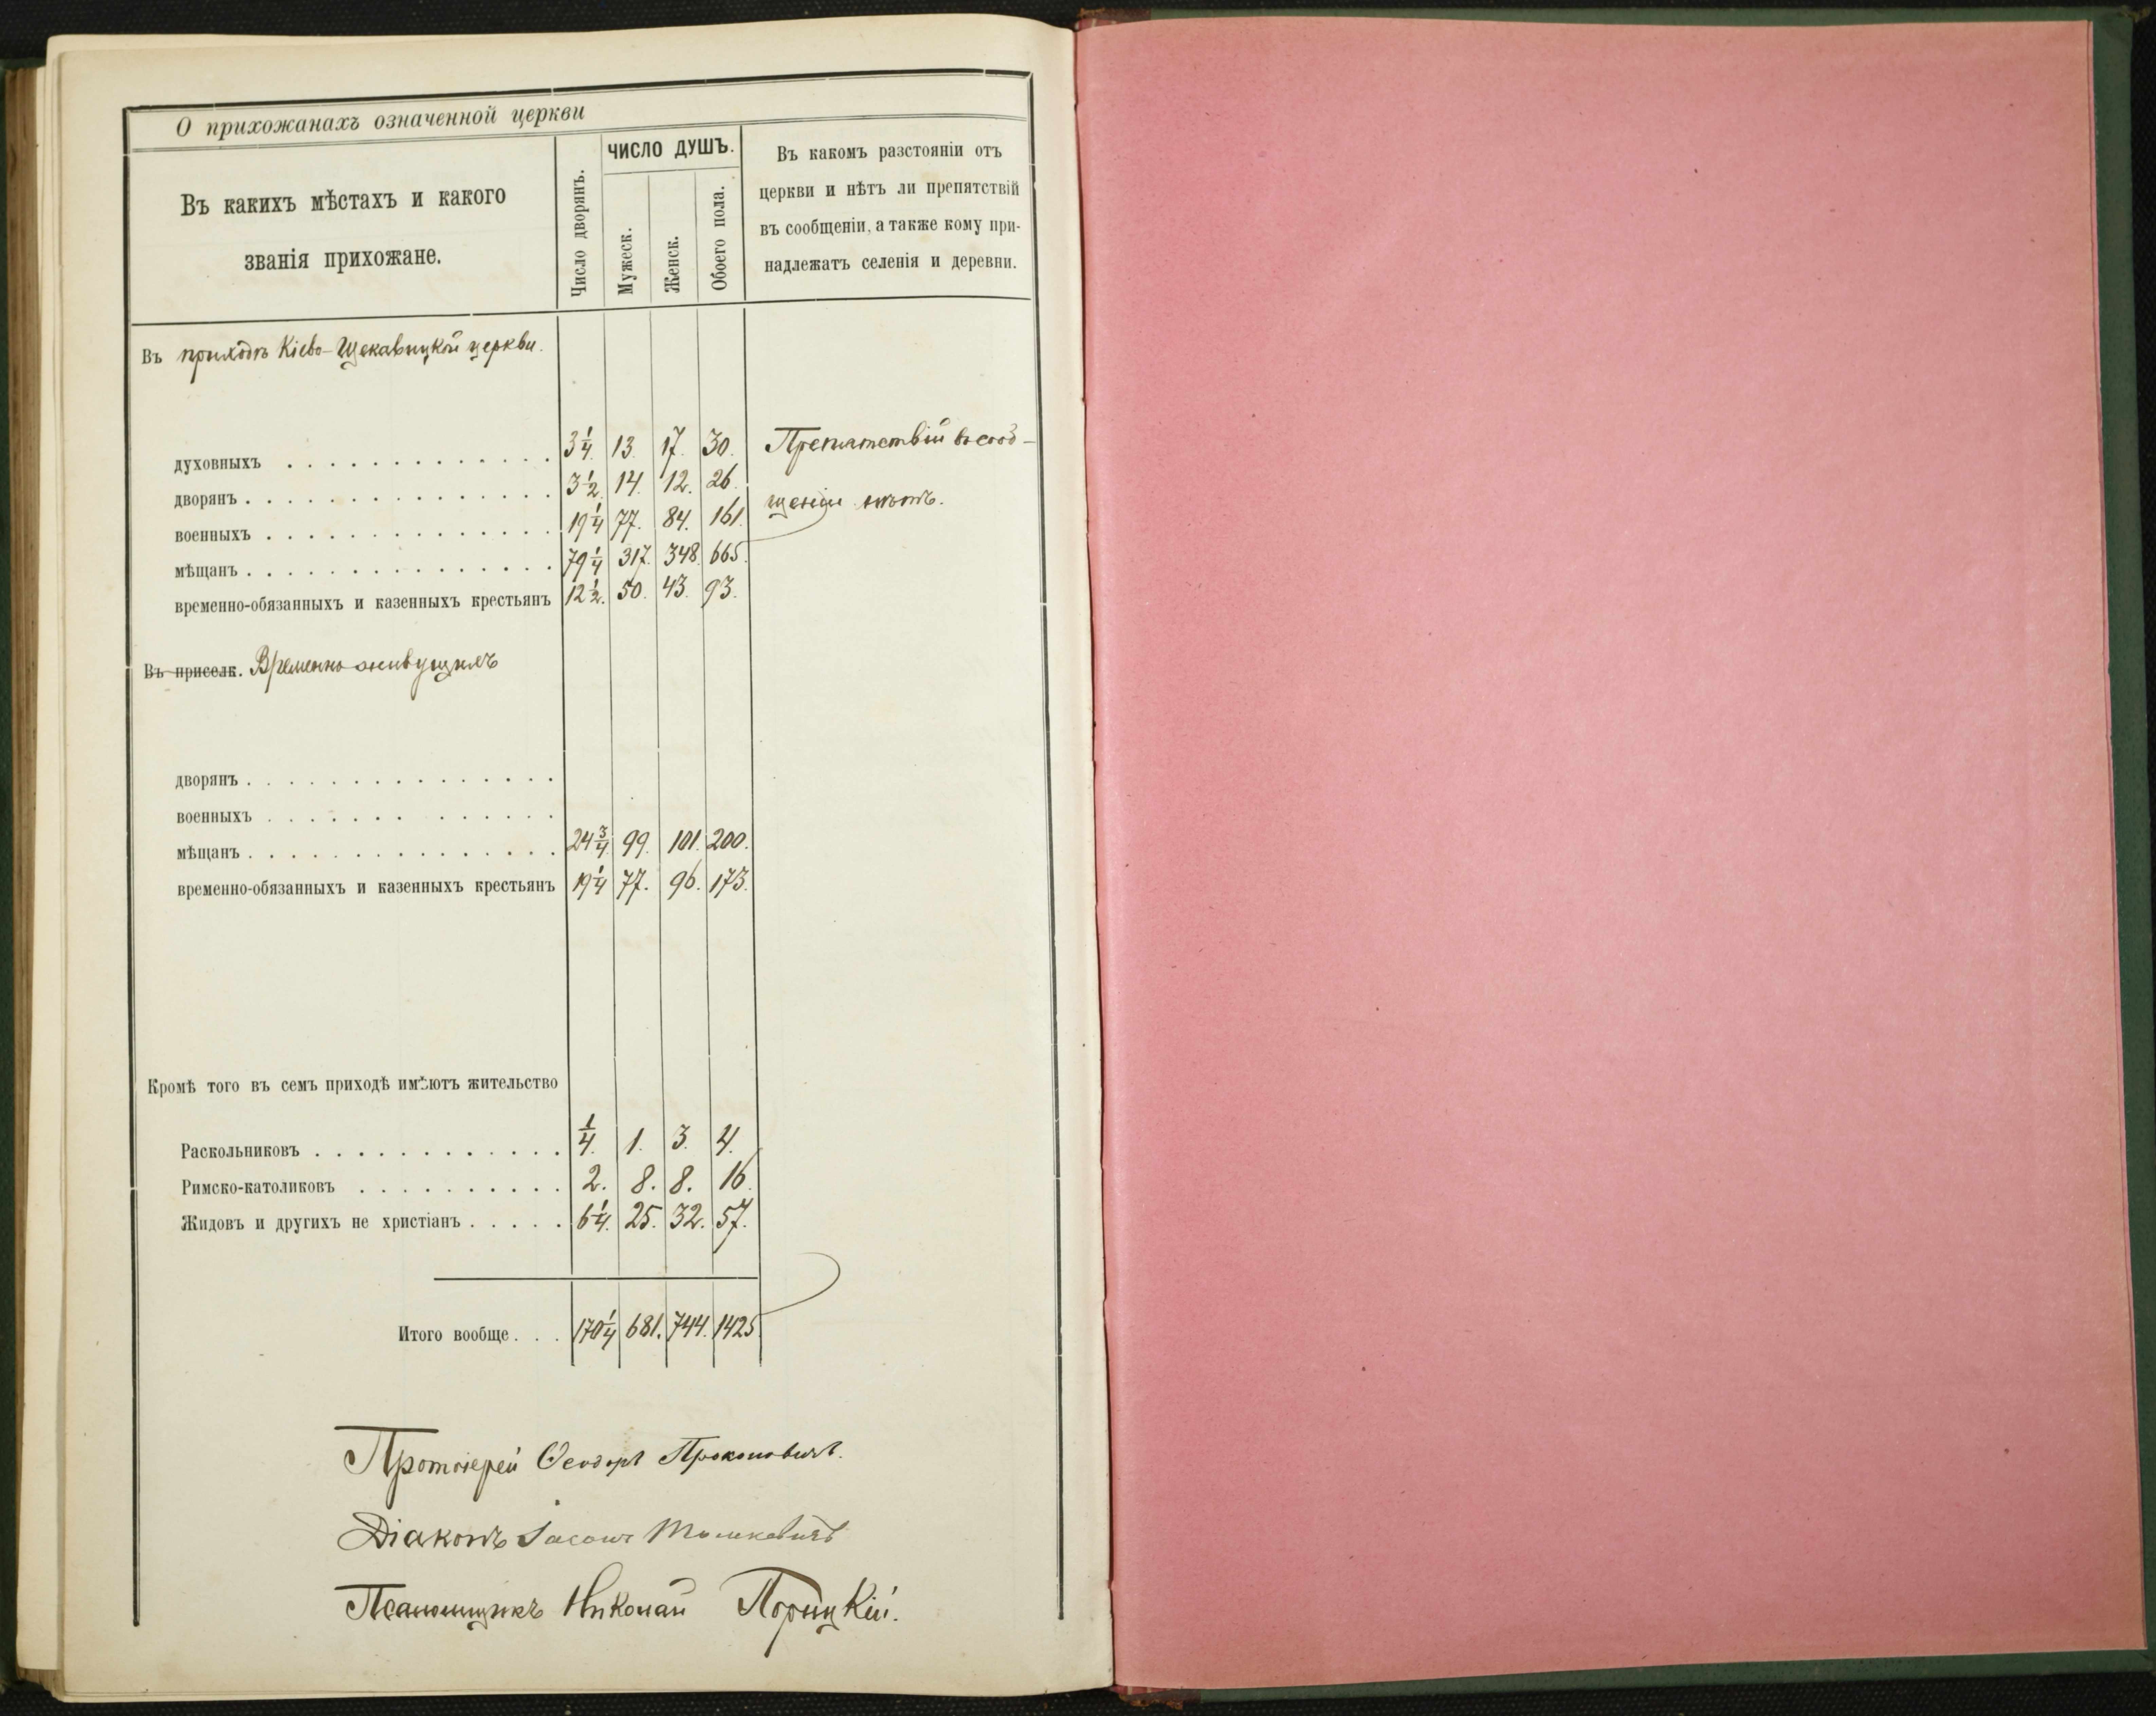 О прихожанахъ означенной церкви
Въ какихъ мѣстахъ и какого
званія прихожане.
Число дворянъ.
ЧИСЛО ДУШЪ.
Мужеск.
Женск.
Обоего пола.
Въ какомъ разстояніи отъ
церкви и нѣтъ ли препятствій
въ сообщеніи, а также кому при-
надлежатъ селенія и деревни.
Въ приходѣ Кіево-Щекавицкой церкви.
духовныхъ . . . . . . . . . . . . . 3¼. 13. 17. 30. Препятствій въ сооб-
дворянъ . . . . . . . . . . . . . . . 3½. 14. 12. 26.
щеніи нѣтъ.
военныхъ . . . . . . . . . . . . . . 19¼ 77. 84. 161.
мѣщанъ . . . . . . . . . . . . . . . 79¼ 317. 348. 665.
временно-обязанныхъ и казенныхъ крестьянъ 12½. 50. 43. 93.
Въ приселк. Временно живущихъ
дворянъ . . . . . . . . . . . . . . .
военныхъ . . . . . . . . . . . . .
мѣщанъ . . . . . . . . . . . . . . . 24¾ 99. 101. 200.
временно-обязанныхъ и казенныхъ крестьянъ 19¼ 77. 96. 173.
Кромѣ того въ семъ приходѣ имѣютъ жительство
Раскольниковъ . . . . . . . . . . . . ¼. 1. 3. 4.
Римско-католиковъ . . . . . . . . . . 2. 8. 8. 16.
Жидовъ и другихъ не христіанъ . . . . . 6¼. 25. 32. 57.
Итого вообще . . . 170¼ 681. 744. 1425
Протоіерей Ѳеодоръ Прокоповичъ.
Діаконъ Іасонъ
Псаломщикъ Николай Порицкій.